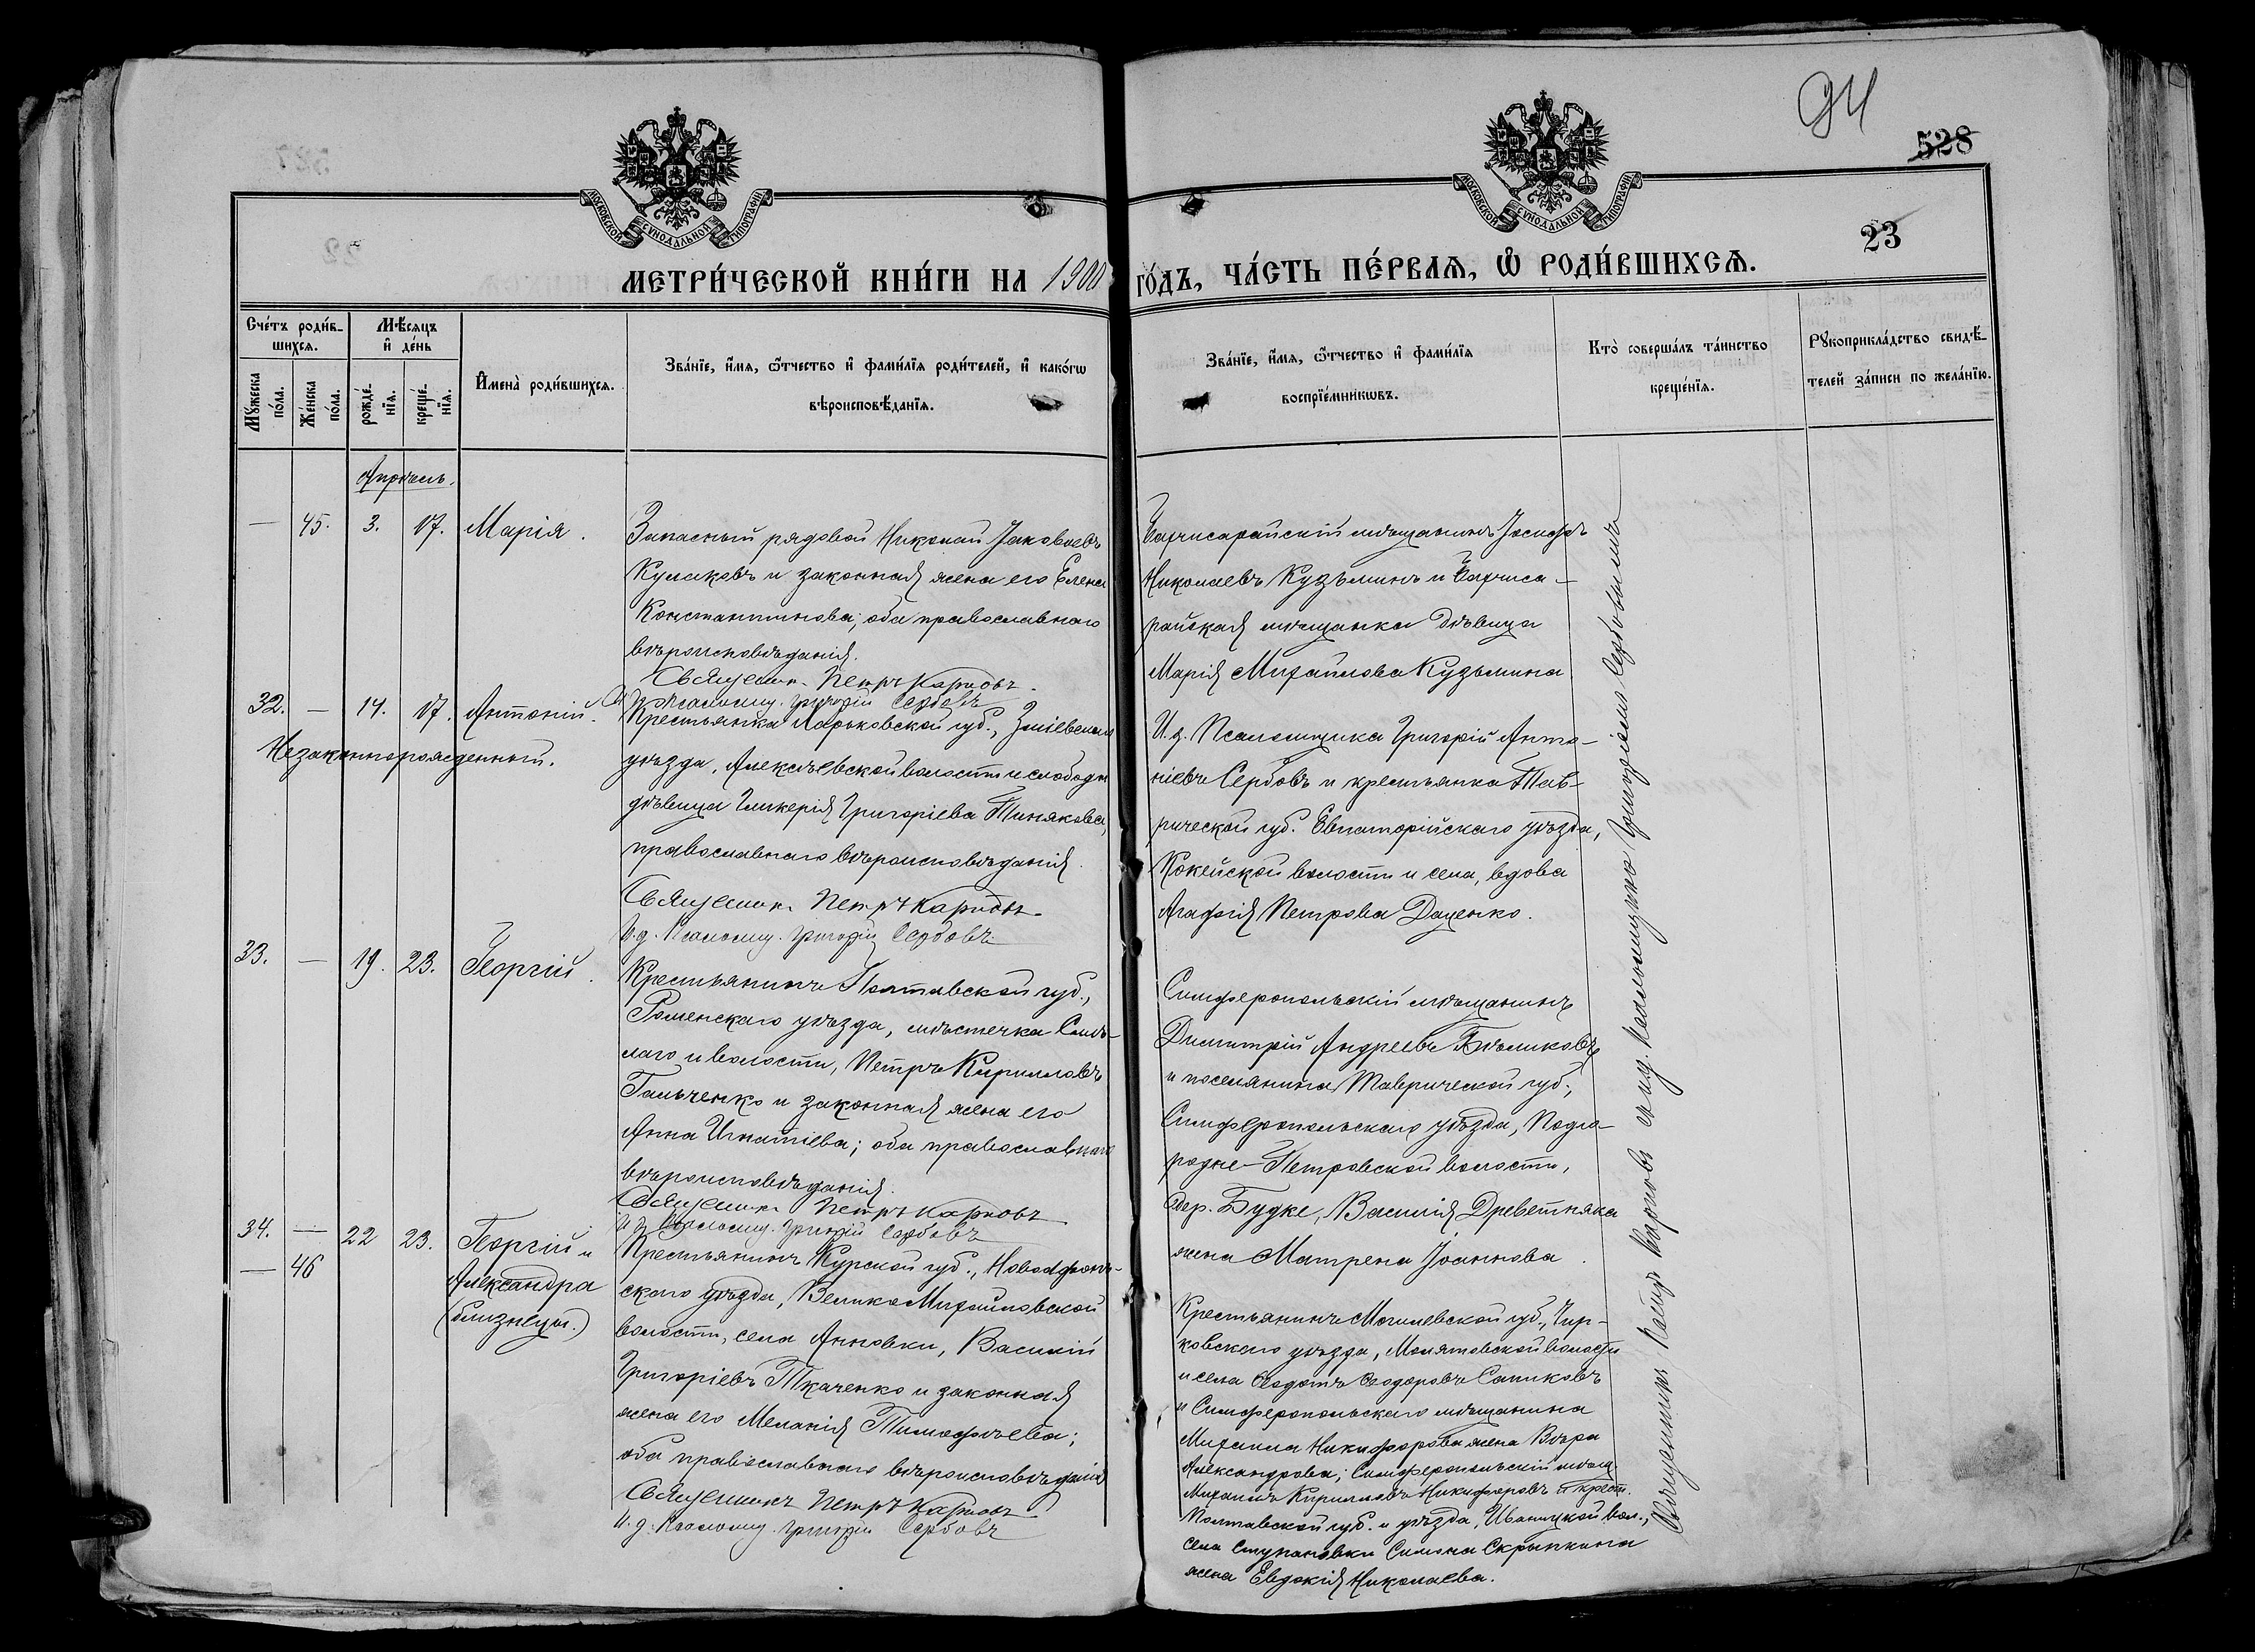 94
528
23
МОСКОВСКОЙ СѴНОДАЛЬНОЙ ТИПОГРАФІИ
МОСКОВСКОЙ СѴНОДАЛЬНОЙ ТИПОГРАФІИ
МЕТРИ́ЧЕСКОЙ КНИ́ГИ НА 1900 ГО́ДЪ, ЧА́СТЬ ПЕ́РВАЯ, Ѡ҆ РОДИ́ВШИХСѦ.
Сче́тъ роди́в-
шихсѧ.
Мѣ́сяцъ
и҆ де́нь
Мꙋ́жеска
по́ла.
Же́нска
по́ла.
рожде́-
нїѧ.
креще́-
нїѧ.
И҆мена̀ роди́вшихсѧ.
Зва́нїе, и҆́мѧ, ѻ҆́тчество и҆ фами́лїѧ роди́телей, и҆ како́гѡ
вѣроисповѣ́данїѧ.
Зва́нїе, и҆́мѧ, ѻ҆́тчество и҆ фами́лїѧ
воспрїе́мникѡвъ.
Кто̀ соверша́лъ та́инство
креще́нїѧ.
Рꙋкоприкла́дство свидѣ́-
телей за́писи по жела́нїю.
Апрѣль.
— 45. 3. 17. Марія.
Запасный рядовой Николай Іаковлевъ
Кулаковъ и законная жена его Елена
Константинова; оба православнаго
вѣроисповѣданія.
Священникъ Петръ Карповъ
И. д. Псаломщ. Григорій Сербовъ
Бахчисарайскій мѣщанинъ Іосифъ
Николаевъ Кузьминъ и Бахчиса-
райская мѣщанка дѣвица
Марія Михайлова Кузьмина
32. — 14. 17. Антоній.
Незаконнорожденный.
Крестьянка Харьковской губ., Зміевскаго
уѣзда, Алексѣевской волости и слободы
дѣвица Гликерія Григоріева Тинякова,
православнаго вѣроисповѣданія.
Священникъ Петръ Карповъ
И. д. Псаломщ. Григорій Сербовъ
И. д. Псаломщика Григорій Анто-
ніевъ Сербовъ и крестьянка Тав-
рической губ. Евпаторійскаго уѣзда,
Кокейской волости и села, вдова
Агафія Петрова Даценко.
33. — 19. 23. Георгій.
Крестьянинъ Полтавской губ.,
Роменскаго уѣзда, мѣстечка Смѣ-
лаго и волости, Петръ Кирилловъ
Гальченко и законная жена его
Анна Игнатіева; оба православнаго
вѣроисповѣданія.
Священникъ Петръ Карповъ
И. д. Псаломщ. Григорій Сербовъ
Симферопольскій мѣщанинъ
Димитрій Андреевъ Бѣликовъ
и поселянина Таврической губ.,
Симферопольскаго уѣзда, Подго-
родне-Петровской волости,
дер. Будке, Василія Древетняка
жена Матрена Іоаннова.
34. — 22 23. Георгій и
— 46 Александра
(близнецы.)
Крестьянинъ Курской губ., Новооскол-
скаго уѣзда, Велико Михайловской
волости, села Анновки, Василій
Григоріевъ Ткаченко и законная
жена его Меланія Тимофѣева;
оба православнаго вѣроисповѣданія
Священникъ Петръ Карповъ
И. д. Псаломщ. Григорій Сербовъ
Крестьянинъ Могилевской губ., Чири-
ковскаго уѣзда, Молятовской волости
и села Ѳеодотъ Ѳеодоровъ Сапиковъ
и Симферопольскаго мѣщанина
Михаила Никифорова жена Вѣра
Александрова; Симферопольскій мѣщ.
Михаилъ Кирилловъ Никифоровъ и крест.
Полтавской губ. и уѣзда, Иваницкой вол.,
села Ступановки Симона Скрыпкина
жена Евдокія Николаева.
Священникъ Петръ Карповъ съ и. д. Псаломщика Григоріемъ Сербовымъ